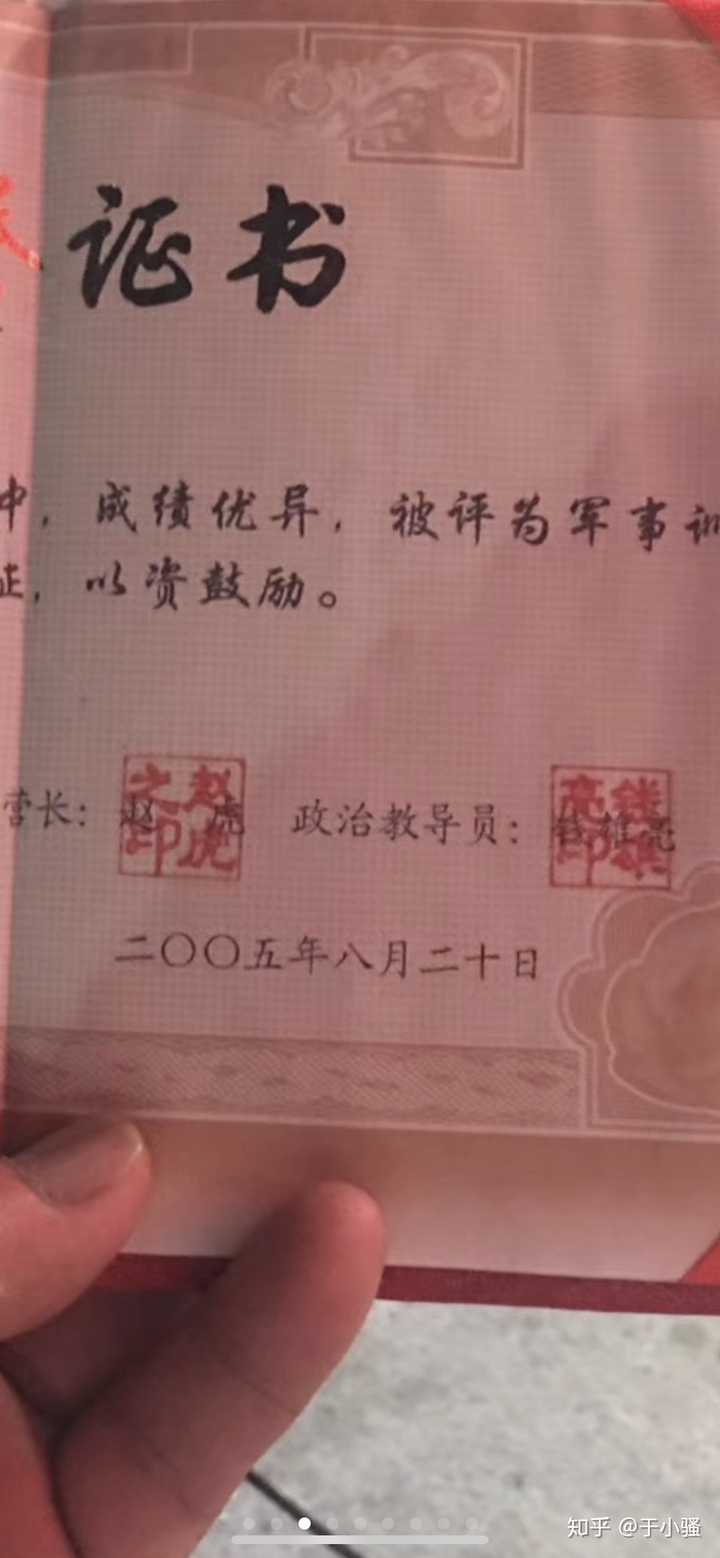 证书
中，成绩优异，被评为军事训
证，以资鼓励。
营长：赵虎 政治教导员：钱雄亮
赵虎之印
钱雄亮印
二〇〇五年八月二十日
知乎 @于小骚